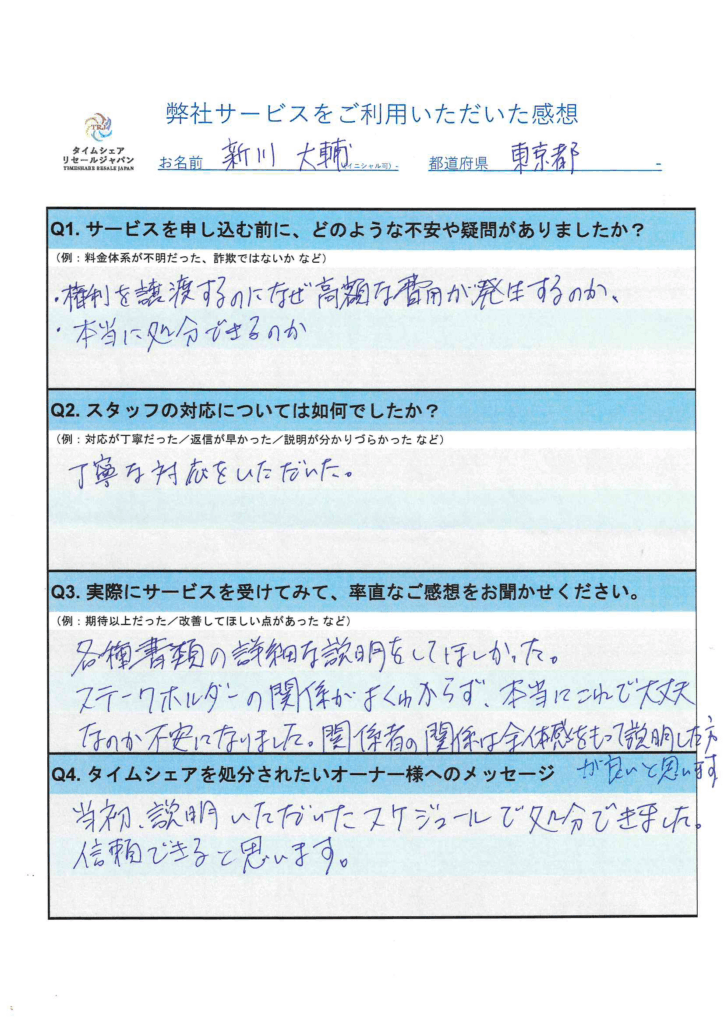 弊社サービスをご利用いただいた感想
TRJ
タイムシェア
リセールジャパン
TIMESHARE RESALE JAPAN
お名前 新川 大輔 (イニシャル可) - 都道府県 東京都 -
Q1. サービスを申し込む前に、どのような不安や疑問がありましたか？
（例：料金体系が不明だった、詐欺ではないか など）
・権利を譲渡するのになぜ高額な費用が発生するのか、
・本当に処分できるのか
Q2. スタッフの対応については如何でしたか？
（例：対応が丁寧だった／返信が早かった／説明が分かりづらかった など）
丁寧な対応をいただいた。
Q3. 実際にサービスを受けてみて、率直なご感想をお聞かせください。
（例：期待以上だった／改善してほしい点があった など）
各種書類の詳細な説明をしてほしかった。
ステークホルダーの関係がよくわからず、本当にこれで大丈夫
なのか不安になりました。関係者の関係は全体感をもって説明した方
が良いと思います
Q4. タイムシェアを処分されたいオーナー様へのメッセージ
当初、説明いただいたスケジュールで処分できました。
信頼できると思います。